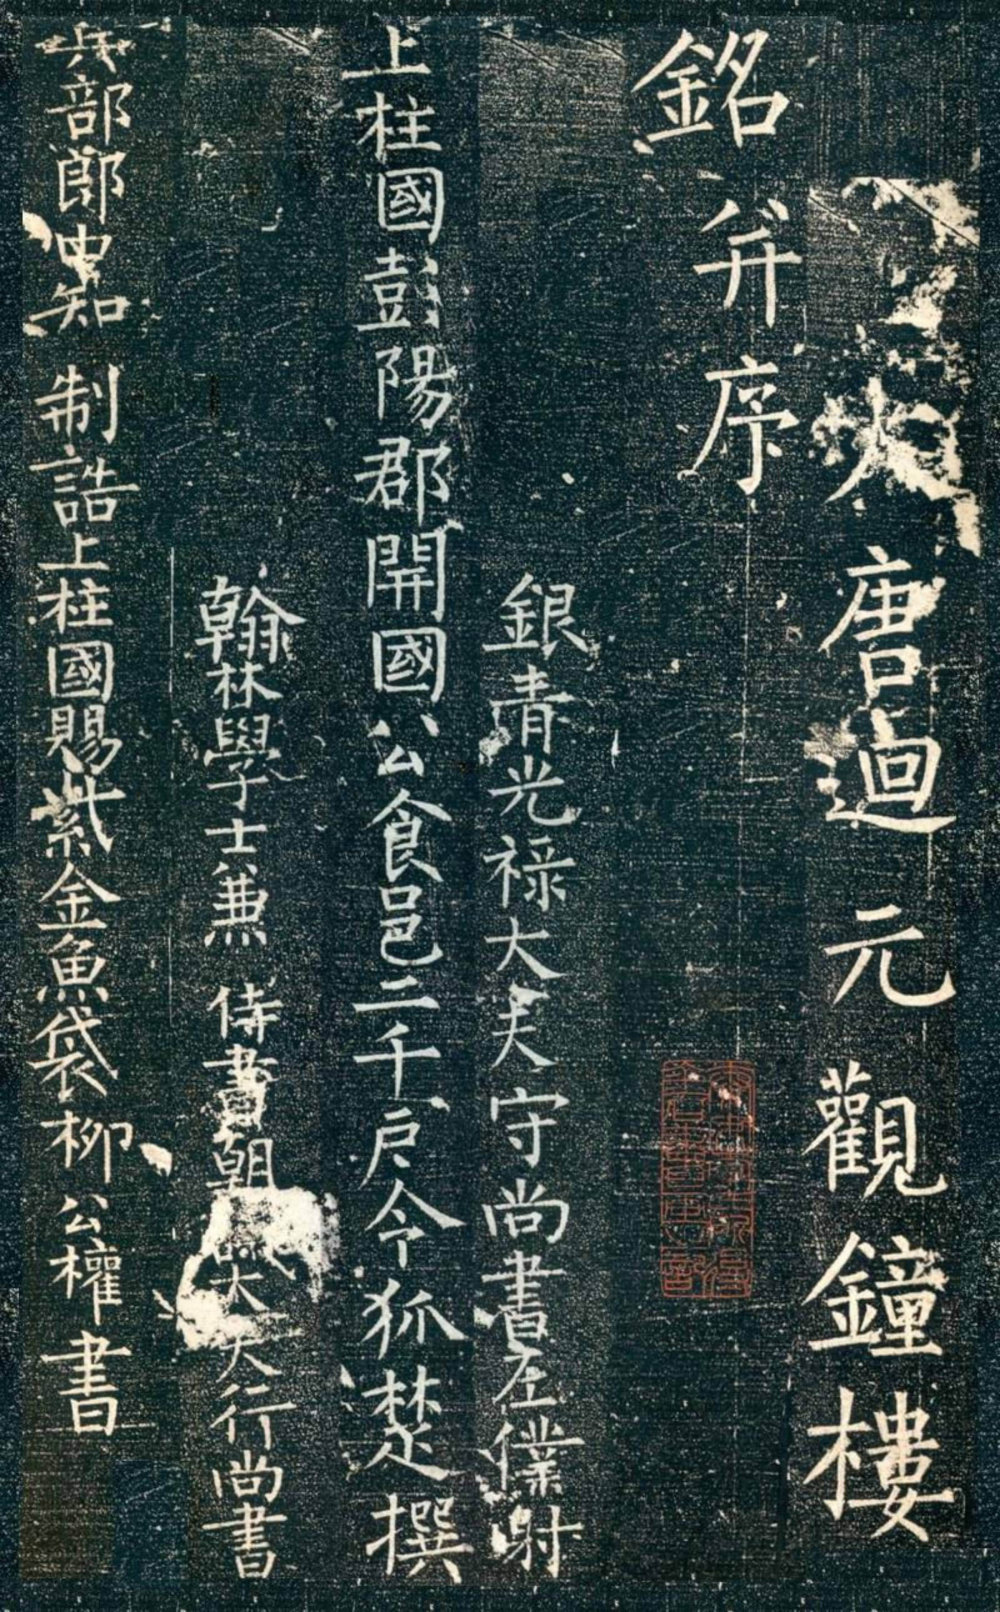 大唐迴元觀鐘樓
銘并序
銀青光禄大夫守尚書左僕射
上柱國彭陽郡開國公食邑二千户令狐楚撰
翰林學士兼侍書朝議大夫行尚書
兵部郎中知制誥上柱國賜紫金魚袋柳公權書